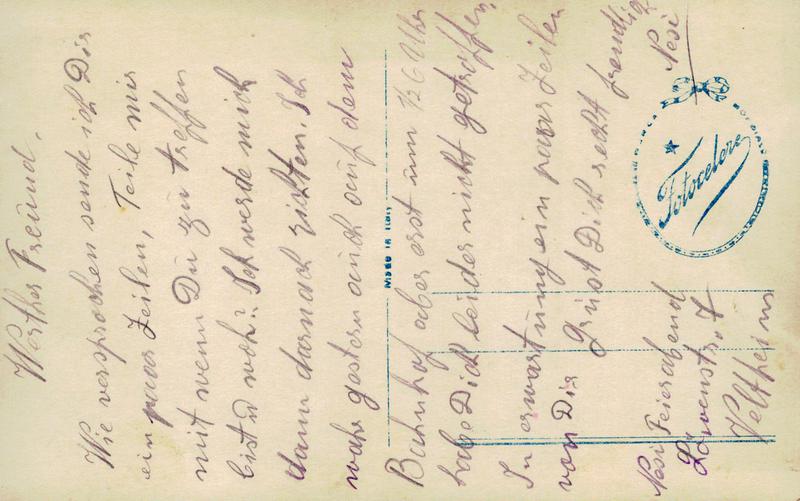 Werther Freund.
Wie versprochen sende ich Dir
ein paar Zeilen, Teile mir
mit wenn Du zu treffen
bist u wo?. Ich werde mich
dann darnach richten. Ich
wahr gestern auch auf dem
Bahnhof aber erst um ½ 6 Uhr
habe Dich leider nicht getroffen,
In erwartung ein paar Zeilen
von Dir Grüst Dich recht freudig
Resi
Resi Feierabend
Löwenstr. 7
Veltheim
MADE IN ITALY
Fotocelere